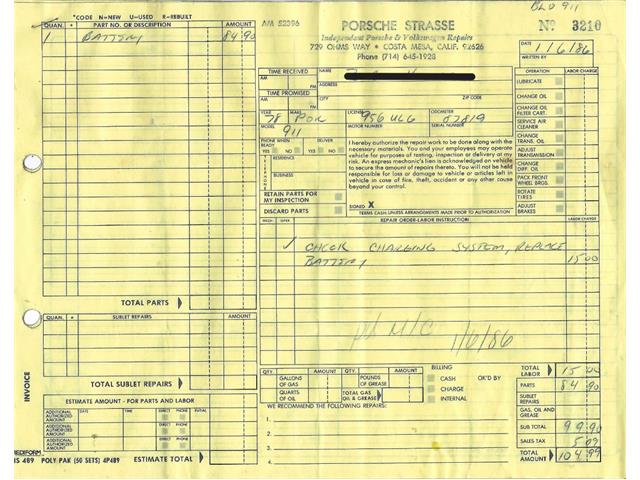 BLD 911
*CODE N=NEW U=USED R=REBUILT
QUAN. * PART NO. OR DESCRIPTION AMOUNT
1 BATTERY 84 90
AM 52096
PORSCHE STRASSE
Independent Porsche & Volkswagen Repairs
729 OHMS WAY • COSTA MESA, CALIF. 92626
Phone (714) 645-1928
No 3210
DATE 1/6/86
WRITTEN BY
TIME RECEIVED
AM
PM
TIME PROMISED
AM
PM
NAME
ADDRESS
CITY
ZIP CODE
YEAR 78 MAKE POR LICENSE 956 ULG ODOMETER 87819
MODEL 911 MOTOR NUMBER SERIAL NUMBER
PHONE WHEN READY YES NO DELIVER YES NO
TELEPHONE
RESIDENCE
BUSINESS
RETAIN PARTS FOR MY INSPECTION
DISCARD PARTS
I hereby authorize the repair work to be done along with the
necessary materials. You and your employees may operate
vehicle for purposes of testing, inspection or delivery at my
risk. An express mechanic's lien is acknowledged on vehicle
to secure the amount of repairs thereto. You will not be held
responsible for loss or damage to vehicle or articles left in
vehicle in case of fire, theft, accident or any other cause
beyond your control.
SIGNED X
TERMS CASH UNLESS ARRANGEMENTS MADE PRIOR TO AUTHORIZATION
OPERATION LABOR CHARGE
LUBRICATE
CHANGE OIL
CHANGE OIL FILTER CART.
SERVICE AIR CLEANER
CHANGE TRANS. OIL
ADJUST TRANSMISSION
CHANGE DIFF. OIL
PACK FRONT WHEEL BRGS.
ROTATE TIRES
ADJUST BRAKES
MECH. OPER. REPAIR ORDER-LABOR INSTRUCTION LABOR CHARGE
✓ CHECK CHARGING SYSTEM, REPLACE
BATTERY 15 00
M/C 1/6/86
TOTAL PARTS
QUAN. * SUBLET REPAIRS AMOUNT
TOTAL SUBLET REPAIRS
INVOICE
ESTIMATE AMOUNT - FOR PARTS AND LABOR
ADDITIONAL AUTHORIZED AMOUNT DATE TIME PHONE INITIAL
ADDITIONAL AUTHORIZED AMOUNT
ADDITIONAL AUTHORIZED AMOUNT
ESTIMATE TOTAL
REDIFORM
5S 489 POLY PAK (50 SETS) 4P489
QTY. AMOUNT QTY. AMOUNT
GALLONS OF GAS POUNDS OF GREASE
QUARTS OF OIL TOTAL GAS OIL & GREASE
BILLING
CASH OK'D BY
CHARGE
INTERNAL
WE RECOMMEND THE FOLLOWING REPAIRS:
TOTAL LABOR 15 00
PARTS 84 90
SUBLET REPAIRS
GAS, OIL AND GREASE
SUB TOTAL 99 90
SALES TAX 5 09
TOTAL AMOUNT 104 99